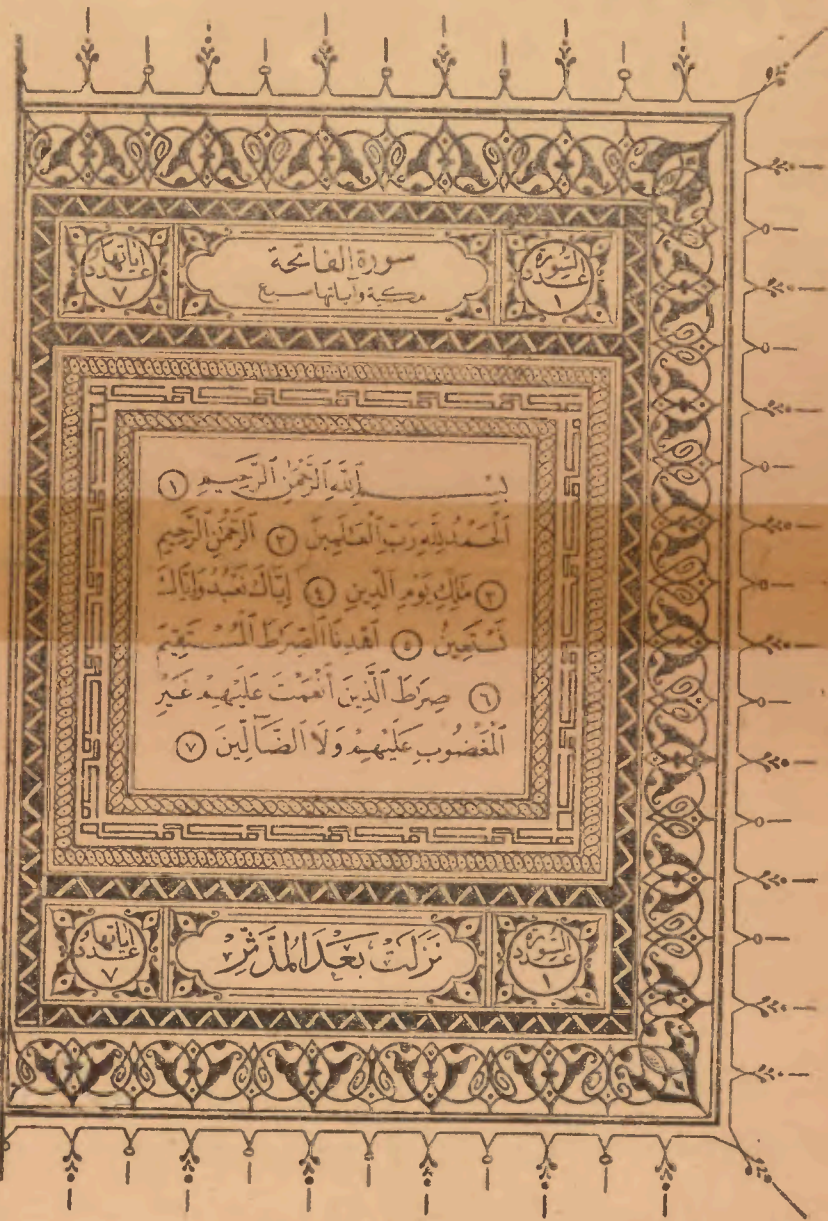 السورة
عدد
١
سورة الفاتحة
مكية وآياتها سبع
آياتها
عدد
٧
بِسْمِ ٱللَّهِ ٱلرَّحْمَٰنِ ٱلرَّحِيمِ ١
ٱلْحَمْدُ لِلَّهِ رَبِّ ٱلْعَالَمِينَ ٢ ٱلرَّحْمَٰنِ ٱلرَّحِيمِ
٣ مَٰلِكِ يَوْمِ ٱلدِّينِ ٤ إِيَّاكَ نَعْبُدُ وَإِيَّاكَ
نَسْتَعِينُ ٥ ٱهْدِنَا ٱلصِّرَٰطَ ٱلْمُسْتَقِيمَ
٦ صِرَٰطَ ٱلَّذِينَ أَنْعَمْتَ عَلَيْهِمْ غَيْرِ
ٱلْمَغْضُوبِ عَلَيْهِمْ وَلَا ٱلضَّآلِّينَ ٧
السورة
عدد
١
نَزَلَتْ بَعْدَ المُدَّثِّرِ
آياتها
عدد
٧